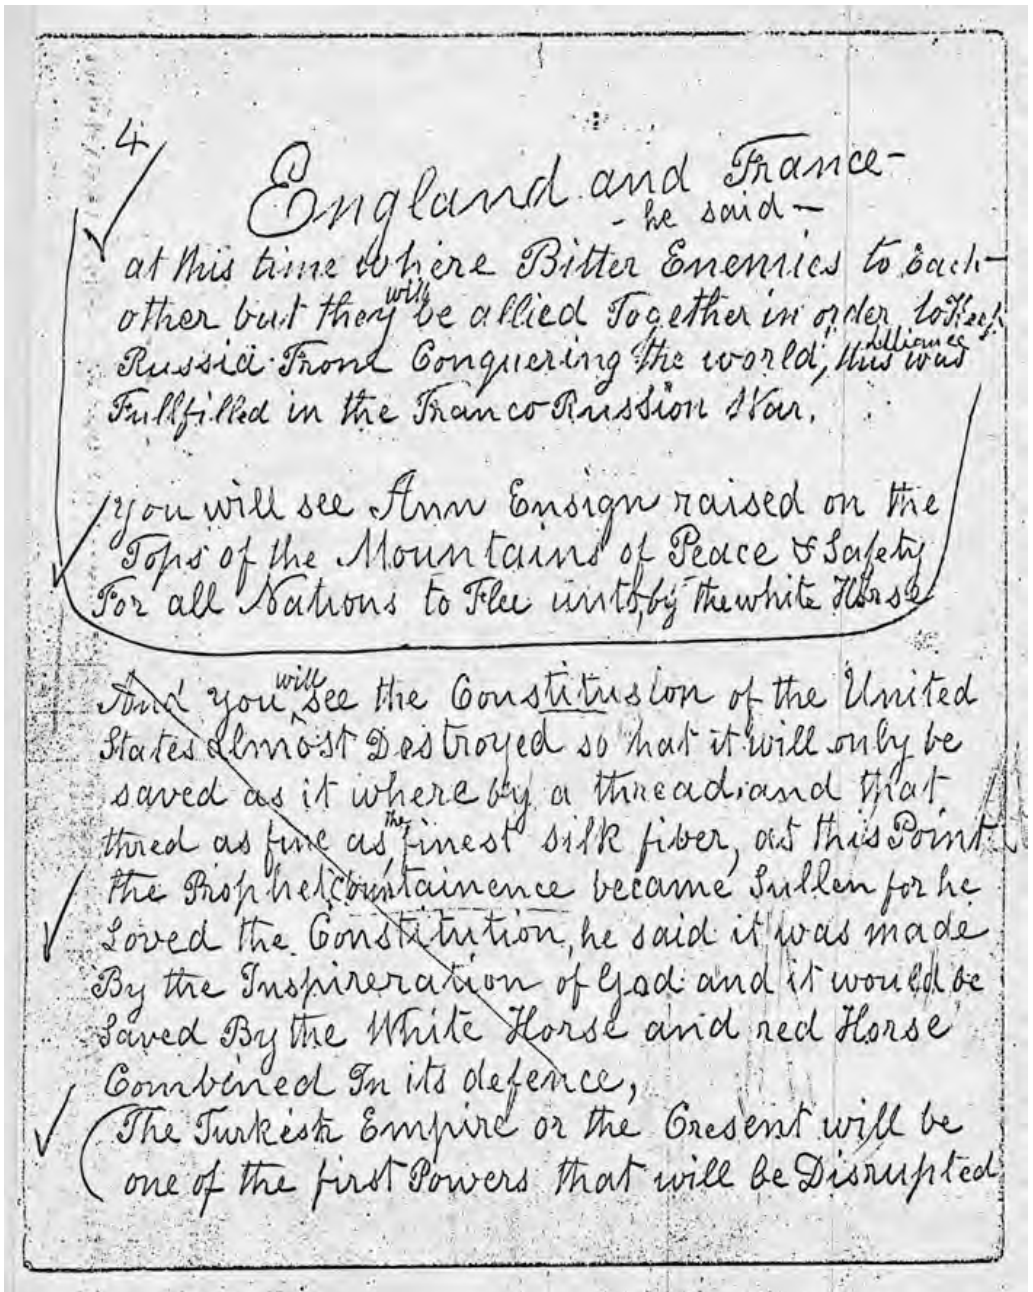 4
England and France-
- he said -
at this time where Bitter Enemies to Each-
other but they will be allied Together in order to Keep
Russia From Conquering the world, this alliance was
Fullfilled in the Franco Russion War.
You will see Ann Ensign raised on the
Tops of the Mountains of Peace & Safety
For all Nations to Flee unto, by the white Horse
And you will see the Constitusion of the United
States almost Destroyed so that it will only be
saved as it where by a thread, and that
thred as fine as the finest silk fiber, at this Point
the Prophet Countainence became Sullen for he
Loved the Constitution, he said it was made
By the Inspireration of God and it would be
Saved By the White Horse and red Horse
Combined In its defence,
(The Turkish Empire or the Cresent will be
one of the first Powers that will be Disrupted